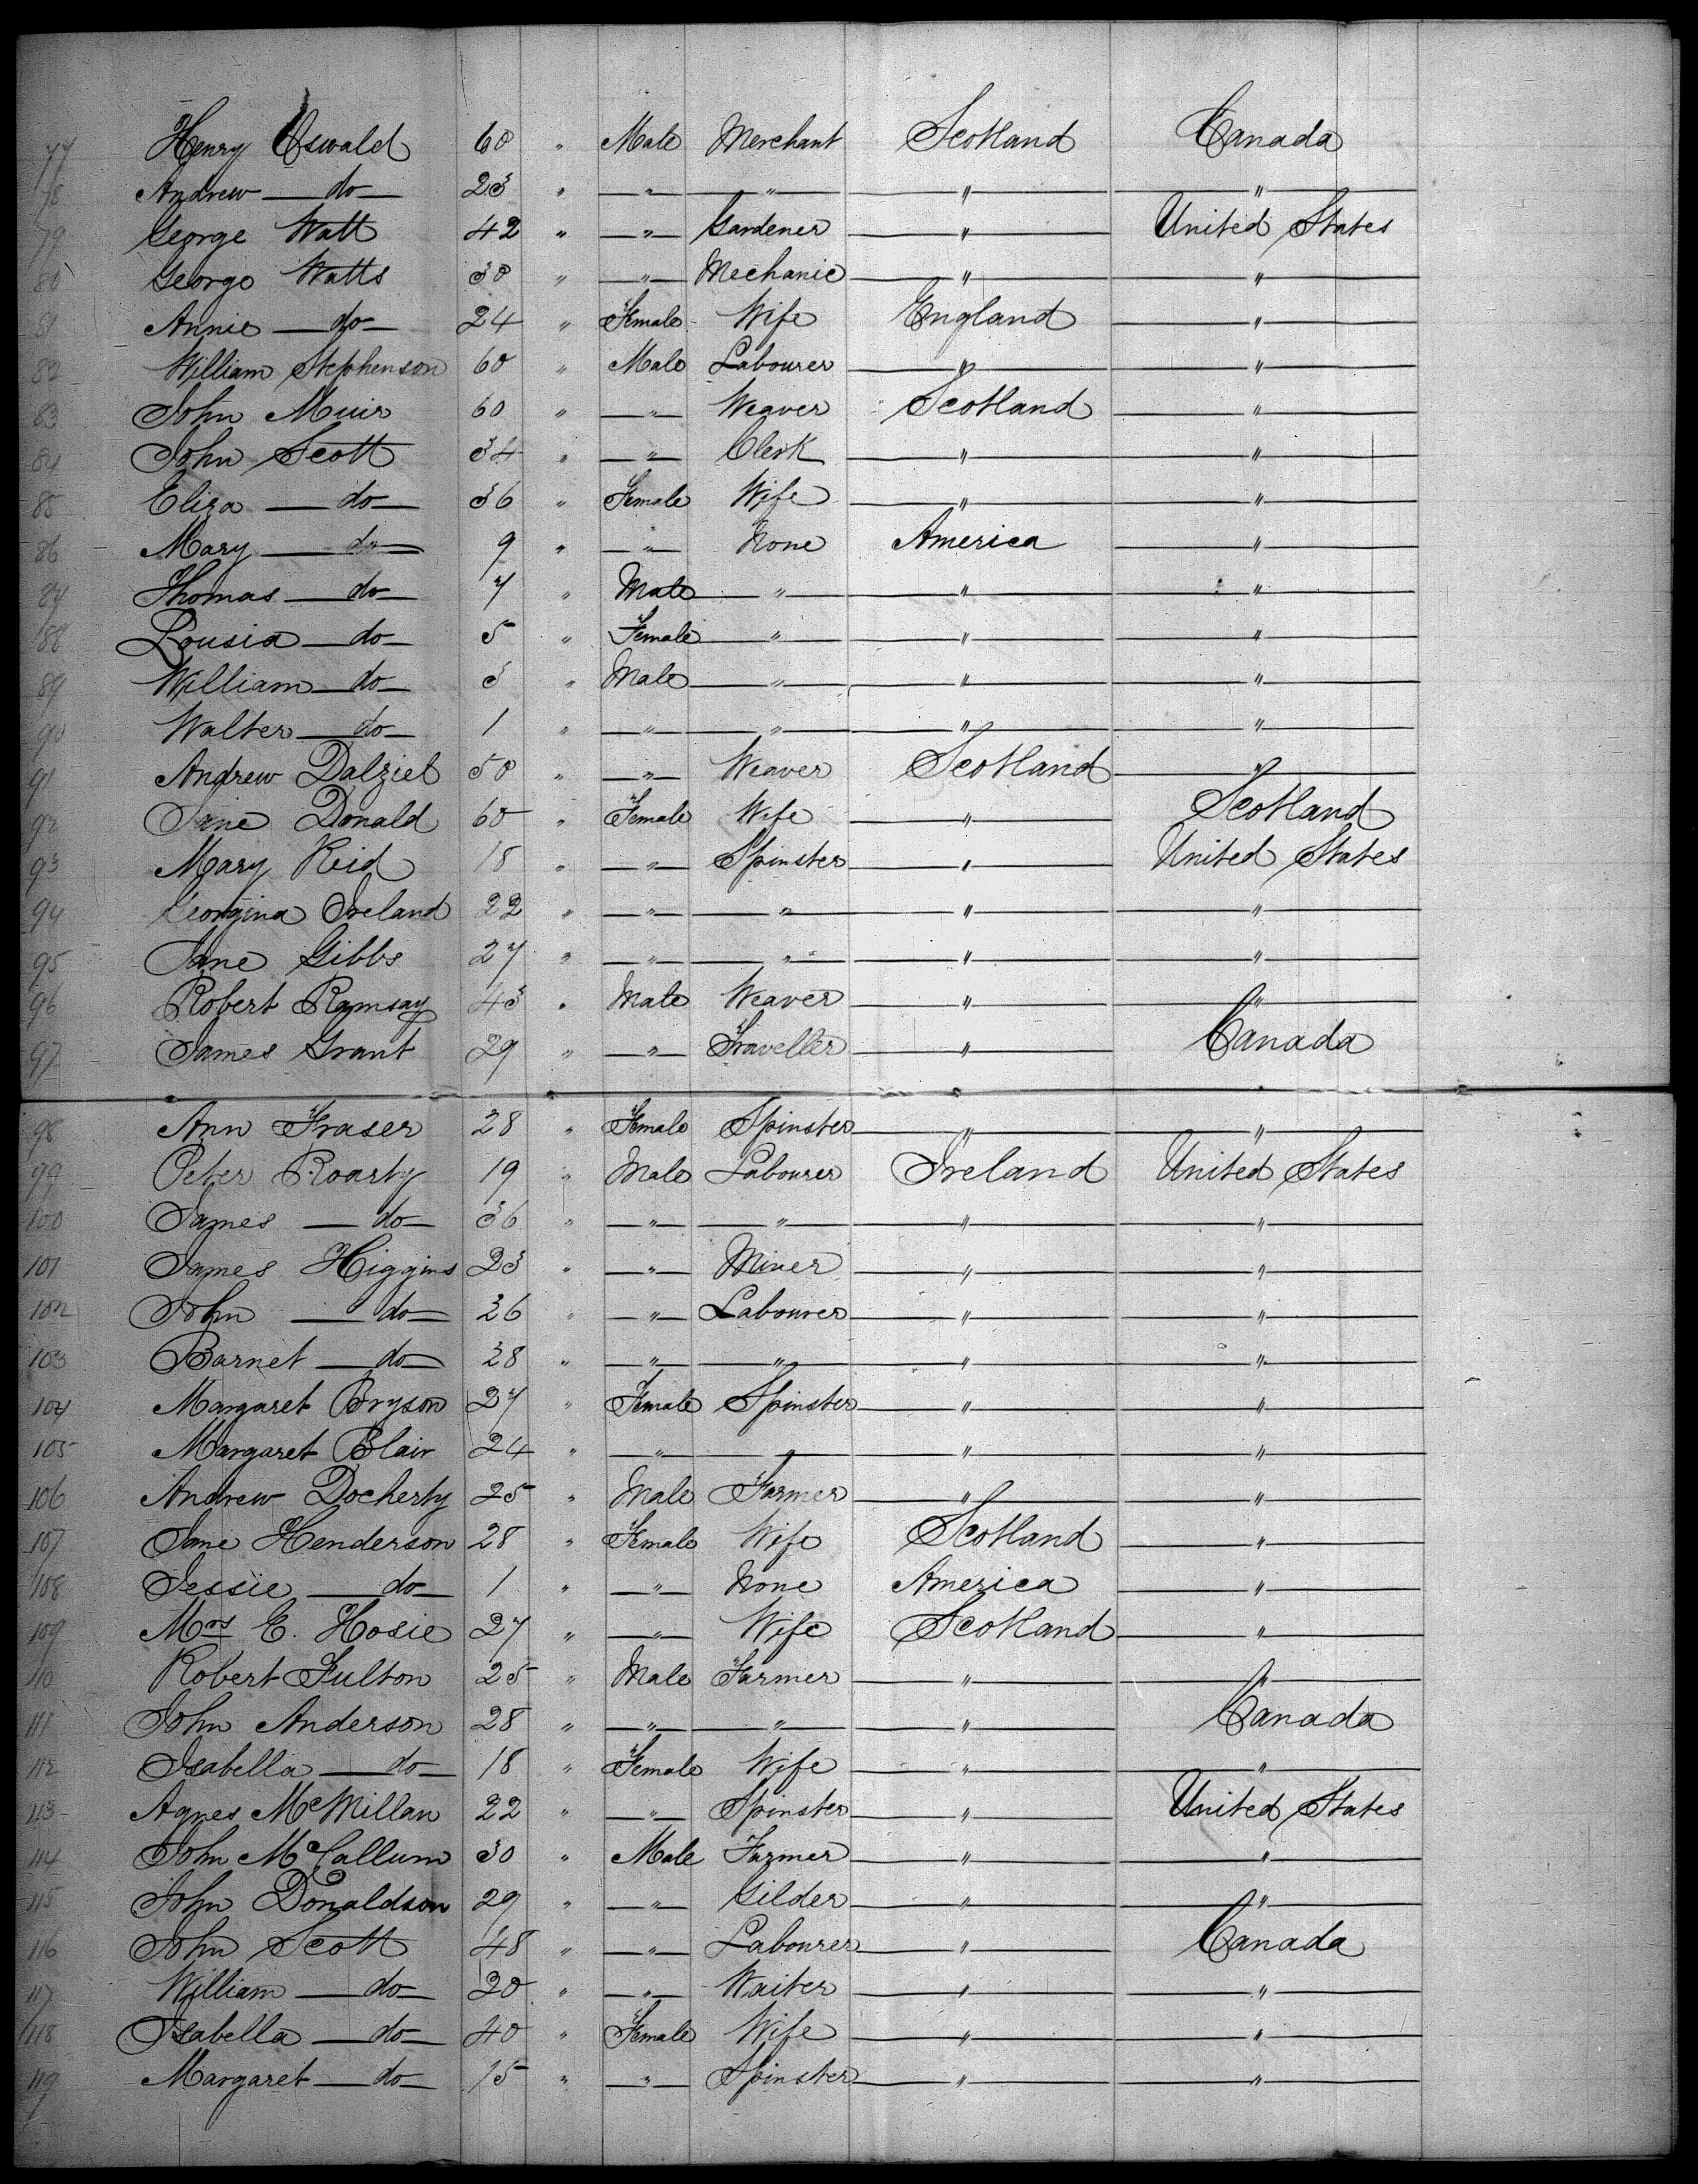 77 Henry Oswald 60 " Male Merchant Scotland Canada
78 Andrew — do — 23 " — " — — " — — " — — " —
79 George Watt 42 " — " — Gardener — " — United States
80 George Watts 30 " — " — Mechanic — " — — " —
81 Annie — do — 24 " Female Wife England — " —
82 William Stephenson 60 " Male Labourer — " — — " —
83 John Muir 60 " — " — Weaver Scotland — " —
84 John Scott 34 " — " — Clerk — " — — " —
85 Eliza — do — 36 " Female Wife — " — — " —
86 Mary — do — 9 " — " — None America — " —
87 Thomas — do — 7 " Male — " — — " — — " —
88 Lousia — do — 5 " Female — " — — " — — " —
89 William — do — 3 " Male — " — — " — — " —
90 Walter — do — 1 " — " — — " — — " — — " —
91 Andrew Dalziel 50 " — " — Weaver Scotland — " —
92 Jane Donald 60 " Female Wife — " — Scotland
93 Mary Reid 18 " — " — Spinster — " — United States
94 Georgina Ireland 22 " — " — — " — — " — — " —
95 Jane Gibbs 27 " — " — — " — — " — — " —
96 Robert Ramsay 43 " Male Weaver — " — — " —
97 James Grant 29 " — " — Traveller — " — Canada
98 Ann Fraser 28 " Female Spinster — " — — " —
99 Peter Roarty 19 " Male Labourer Ireland United States
100 James — do — 36 " — " — — " — — " — — " —
101 James Higgins 23 " — " — Miner — " — — " —
102 John — do — 26 " — " — Labourer — " — — " —
103 Barnet — do — 28 " — " — — " — — " — — " —
104 Margaret Bryson 27 " Female Spinster — " — — " —
105 Margaret Blair 24 " — " — — " — — " — — " —
106 Andrew Docherty 25 " Male Farmer — " — — " —
107 Jane Henderson 28 " Female Wife Scotland — " —
108 Jessie — do — 1 " — " — None America — " —
109 Mrs E. Hosie 27 " — " — Wife Scotland — " —
110 Robert Fulton 25 " Male Farmer — " — — " —
111 John Anderson 28 " — " — — " — — " — Canada
112 Isabella — do — 18 " Female Wife — " — — " —
113 Agnes McMillan 22 " — " — Spinster — " — United States
114 John McCallum 30 " Male Farmer — " — — " —
115 John Donaldson 29 " — " — Gilder — " — — " —
116 John Scott 48 " — " — Labourer — " — Canada
117 William — do — 20 " — " — Waiter — " — — " —
118 Isabella — do — 40 " Female Wife — " — — " —
119 Margaret — do — 15 " — " — Spinster — " — — " —